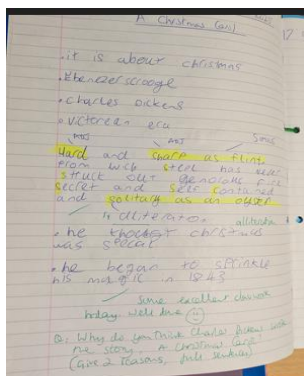 A Christmas Carol
12
• it is about christmas
• Ebenezer scrooge
• charles Dickens
• victorean era
ADJ ADJ
Hard and sharp as flint,
from wich steel has ever
struck out generous fire
secret and self contained
and solitary as an oyster
alliteration
• he christmas
was special
• he began to sprinkle
his in 1843
some excellent classwork
today well done
Q: Why do you think Charles Dickens wrote
the story, A Christmas Carol?
(Give 2 reasons, full sentences)